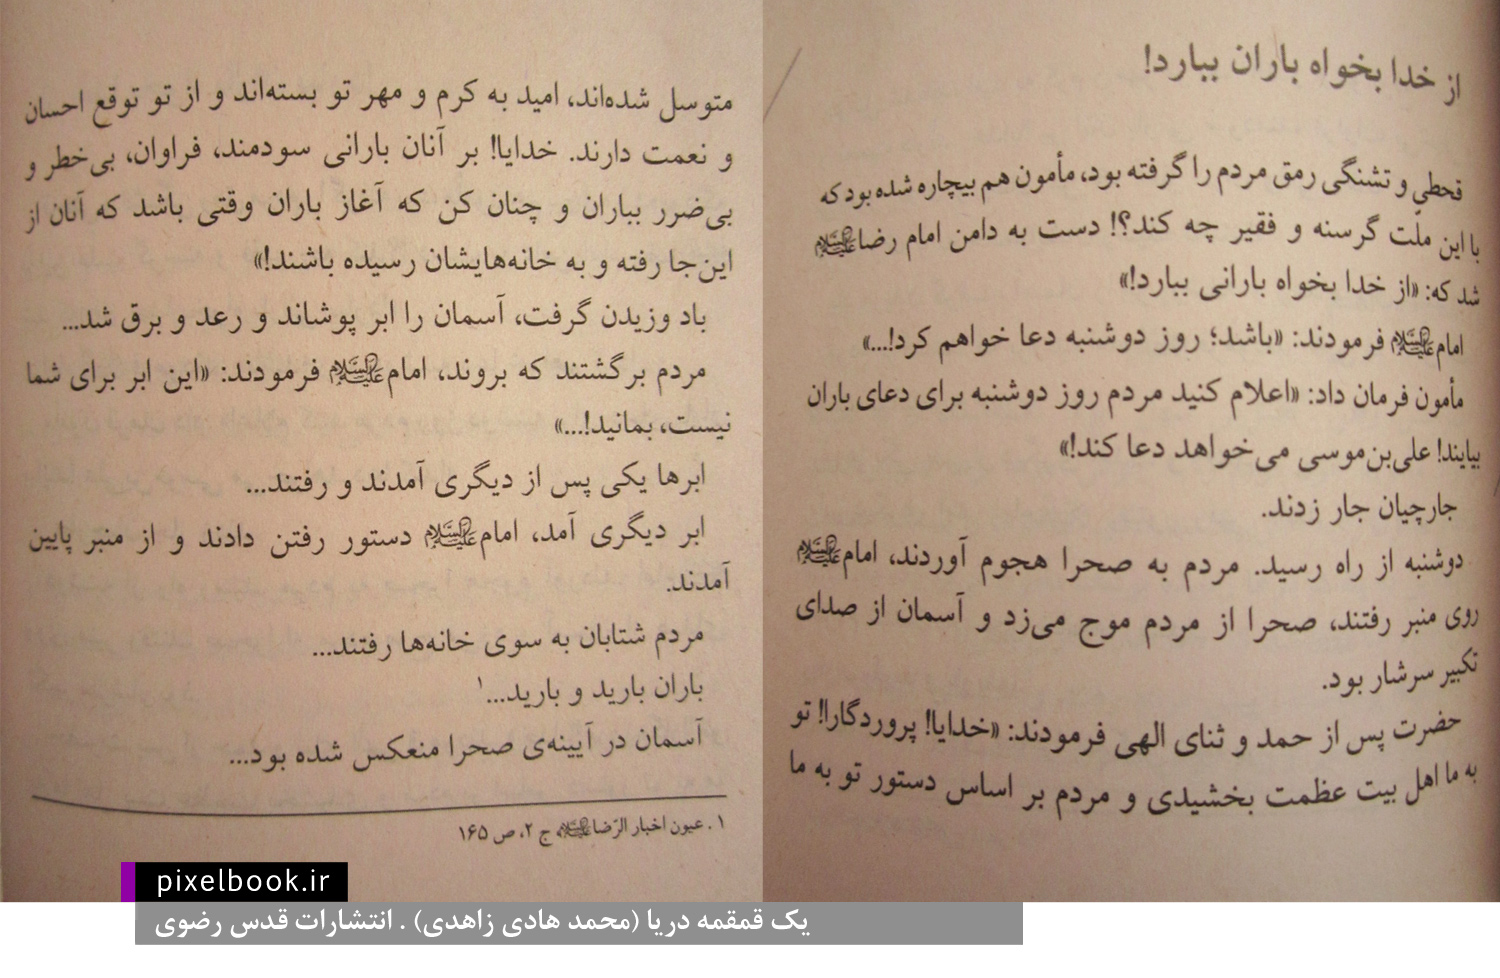 از خدا بخواه باران ببارد!
قحطی و تشنگی رمق مردم را گرفته بود، مأمون هم بیچاره شده بود که
با این ملّت گرسنه و فقیر چه کند؟! دست به دامن امام رضا علیه‌السلام
شد که: «از خدا بخواه بارانی ببارد!»
امام علیه‌السلام فرمودند: «باشد؛ روز دوشنبه دعا خواهم کرد!...»
مأمون فرمان داد: «اعلام کنید مردم روز دوشنبه برای دعای باران
بیایند! علی‌بن‌موسی می‌خواهد دعا کند!»
جارچیان جار زدند.
دوشنبه از راه رسید. مردم به صحرا هجوم آوردند، امام علیه‌السلام
روی منبر رفتند، صحرا از مردم موج می‌زد و آسمان از صدای
تکبیر سرشار بود.
حضرت پس از حمد و ثنای الهی فرمودند: «خدایا! پروردگارا! تو
به ما اهل بیت عظمت بخشیدی و مردم بر اساس دستور تو به ما
متوسل شده‌اند، امید به کرم و مهر تو بسته‌اند و از تو توقع احسان
و نعمت دارند. خدایا! بر آنان بارانی سودمند، فراوان، بی‌خطر و
بی‌ضرر بباران و چنان کن که آغاز باران وقتی باشد که آنان از
این‌جا رفته و به خانه‌هایشان رسیده باشند!»
باد وزیدن گرفت، آسمان را ابر پوشاند و رعد و برق شد...
مردم برگشتند که بروند، امام علیه‌السلام فرمودند: «این ابر برای شما
نیست، بمانید!...»
ابرها یکی پس از دیگری آمدند و رفتند...
ابر دیگری آمد، امام علیه‌السلام دستور رفتن دادند و از منبر پایین
آمدند.
مردم شتابان به سوی خانه‌ها رفتند...
باران بارید و بارید...۱
آسمان در آیینه‌ی صحرا منعکس شده بود...
۱. عیون اخبار الرّضا علیه‌السلام، ج ۲، ص ۱۶۵
pixelbook.ir
یک قمقمه دریا (محمد هادی زاهدی) . انتشارات قدس رضوی